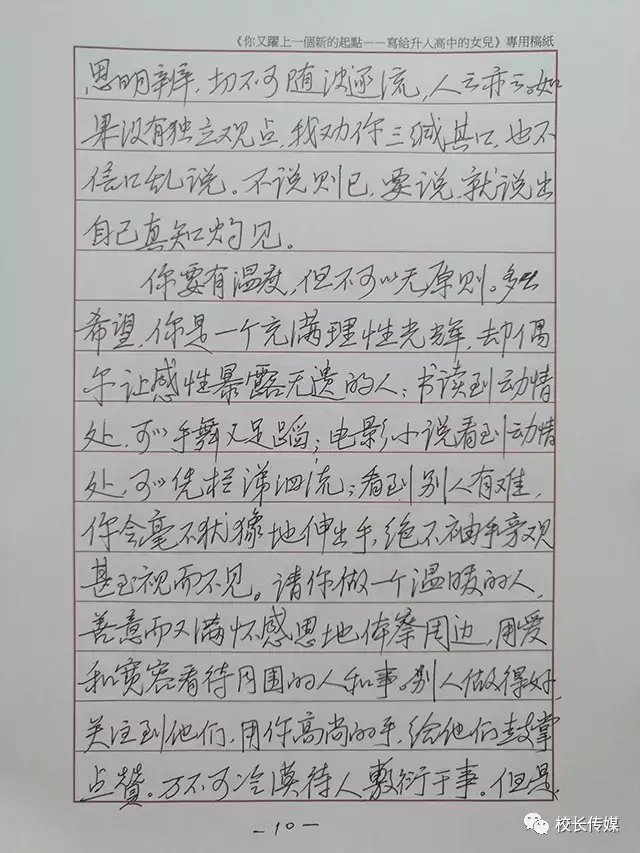 《你又躍上一個新的起點——寫給升入高中的女兒》專用稿紙
思明辨，切不可随波逐流，人云亦云。如
果没有独立观点，我劝你三缄其口，也不
信口乱说。不说则已，要说，就说出
自己真知灼见。
你要有温度，但不可以无原则。多么
希望，你是一个充满理性光辉，却偶
尔让感性暴露无遗的人：书读到动情
处，可以手舞又足蹈；电影小说看到动情
处，可以凭栏涕泗流；看到别人有难，
你会毫不犹豫地伸出手，绝不袖手旁观
甚至视而不见。请你做一个温暖的人，
善意而又满怀感恩地体察周边，用爱
和宽容看待周围的人和事。别人做得好，
关注到他们，用你高尚的手，给他们鼓掌
点赞。万不可冷漠待人，敷衍于事。但是，
-10-
校长传媒